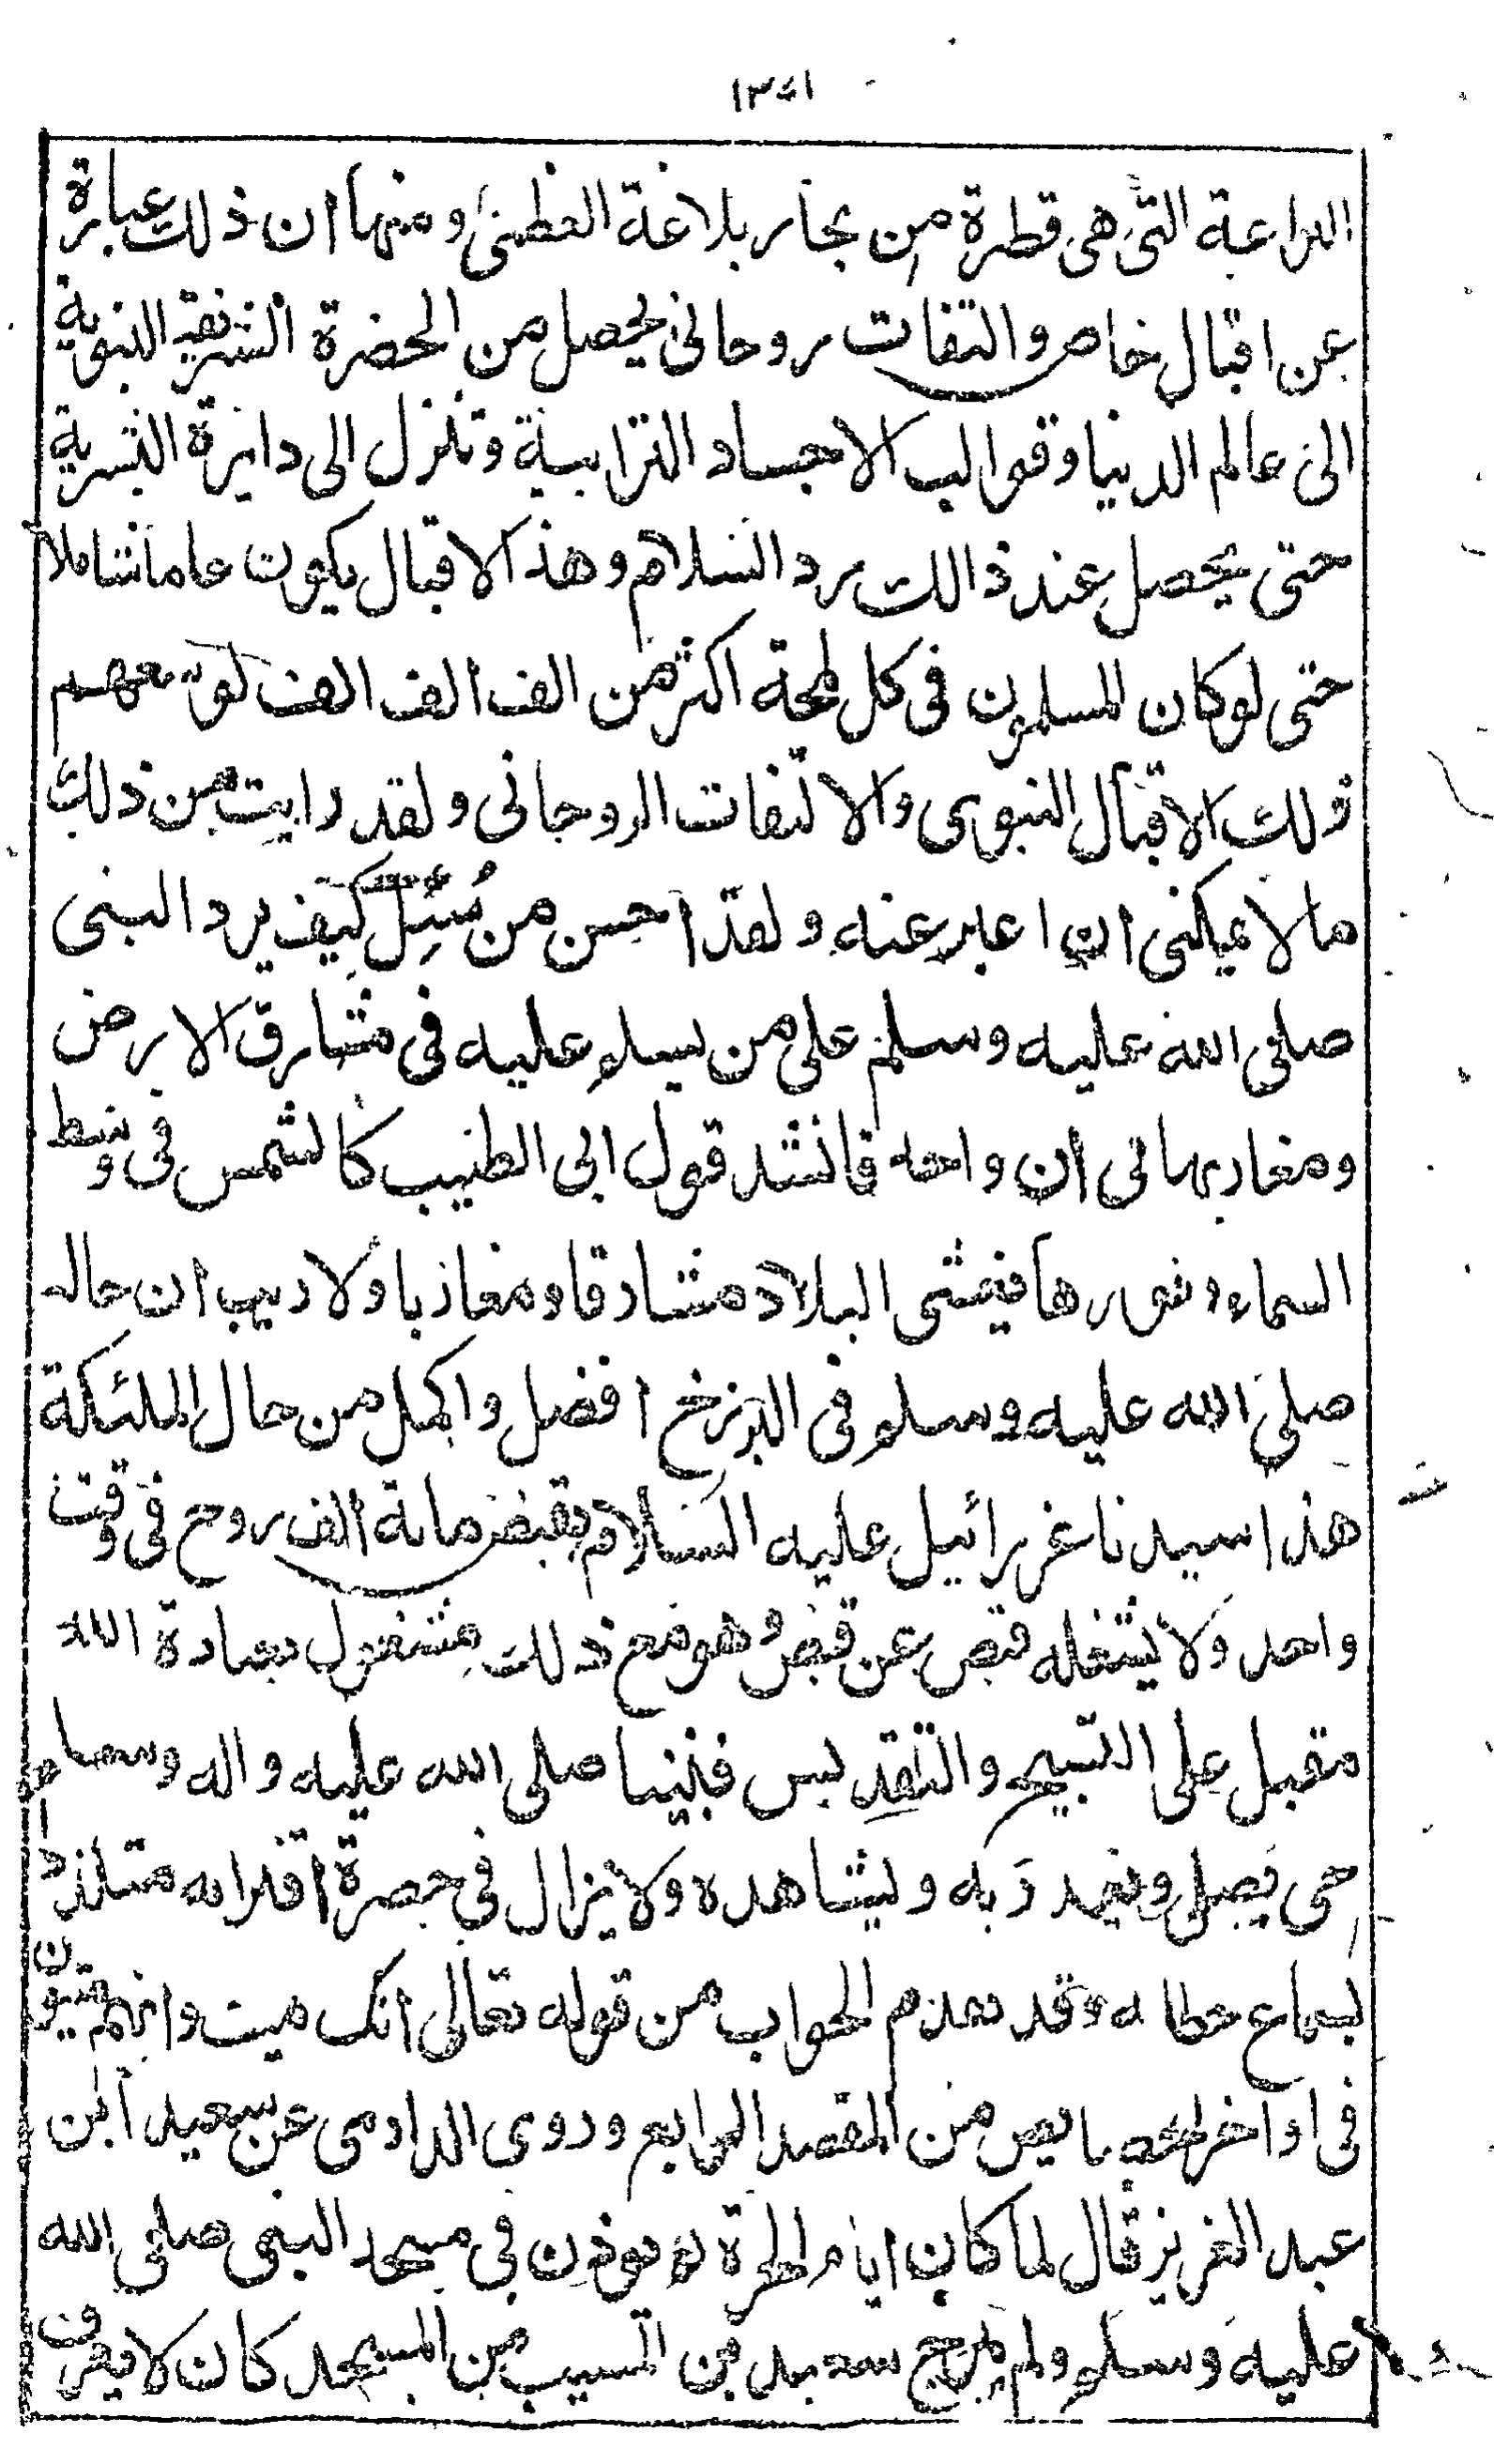 ١٣٤١
البراعة التى هى قطرة من بحار بلاغة العظمى ومنها ان ذلك عبارة
عن اقبال خاص والتفات روحانى يحصل من الحضرة الشريفة النبوية
الى عالم الدنيا وقوالب الاجساد الترابية وتنزل الى دائرة البشرية
حتى يحصل عند ذالك يرد السلام وهذ الاقبال يكون عاما شاملا
حتى لو كان المسلمون فى كل لمحة اكثر من الف الف الف لوسعهم
ذلك الاقبال النبوى والالتفات الروحانى ولقد رايت من ذلك
ما لا يمكنى ان اعبر عنه ولقد احسن من سُئِل كيف يرد النبى
صلى الله عليه وسلم على من يسلم عليه فى مشارق الارض
ومغاربها فى ان واحد فانشد قول ابى الطيب كالشمس فى وسط
السماء ونورها يغشى البلاد مشارقا ومغاربا ولا ريب ان حاله
صلى الله عليه وسلم فى البرزخ افضل واكمل من حال الملئكة
هذا سيدنا عزرائيل عليه السلام يقبض مائة الف روح فى وقت
واحد ولا يشغله قبض عن قبض وهو مع ذلك مشغول بعبادة الله
مقبل على التسبيح والتقديس فنبينا صلى الله عليه واله وسلم
حى يصلى ويعبد ربه ويشاهده ولا يزال فى حضرة اقترابه متلذذا
بسماع خطابه وقد تقدم الجواب من قوله تعالى انك ميت وانهم ميتون
فى اواخر الخصايص من المقصد الرابع وروى الدارمى عن سعيد ابن
عبد العزيز قال لما كان ايام الحرة لم يوذن فى مسجد النبى صلى الله
عليه وسلم ولم يبرح سعيد بن المسيب من المسجد كان لا يعرف